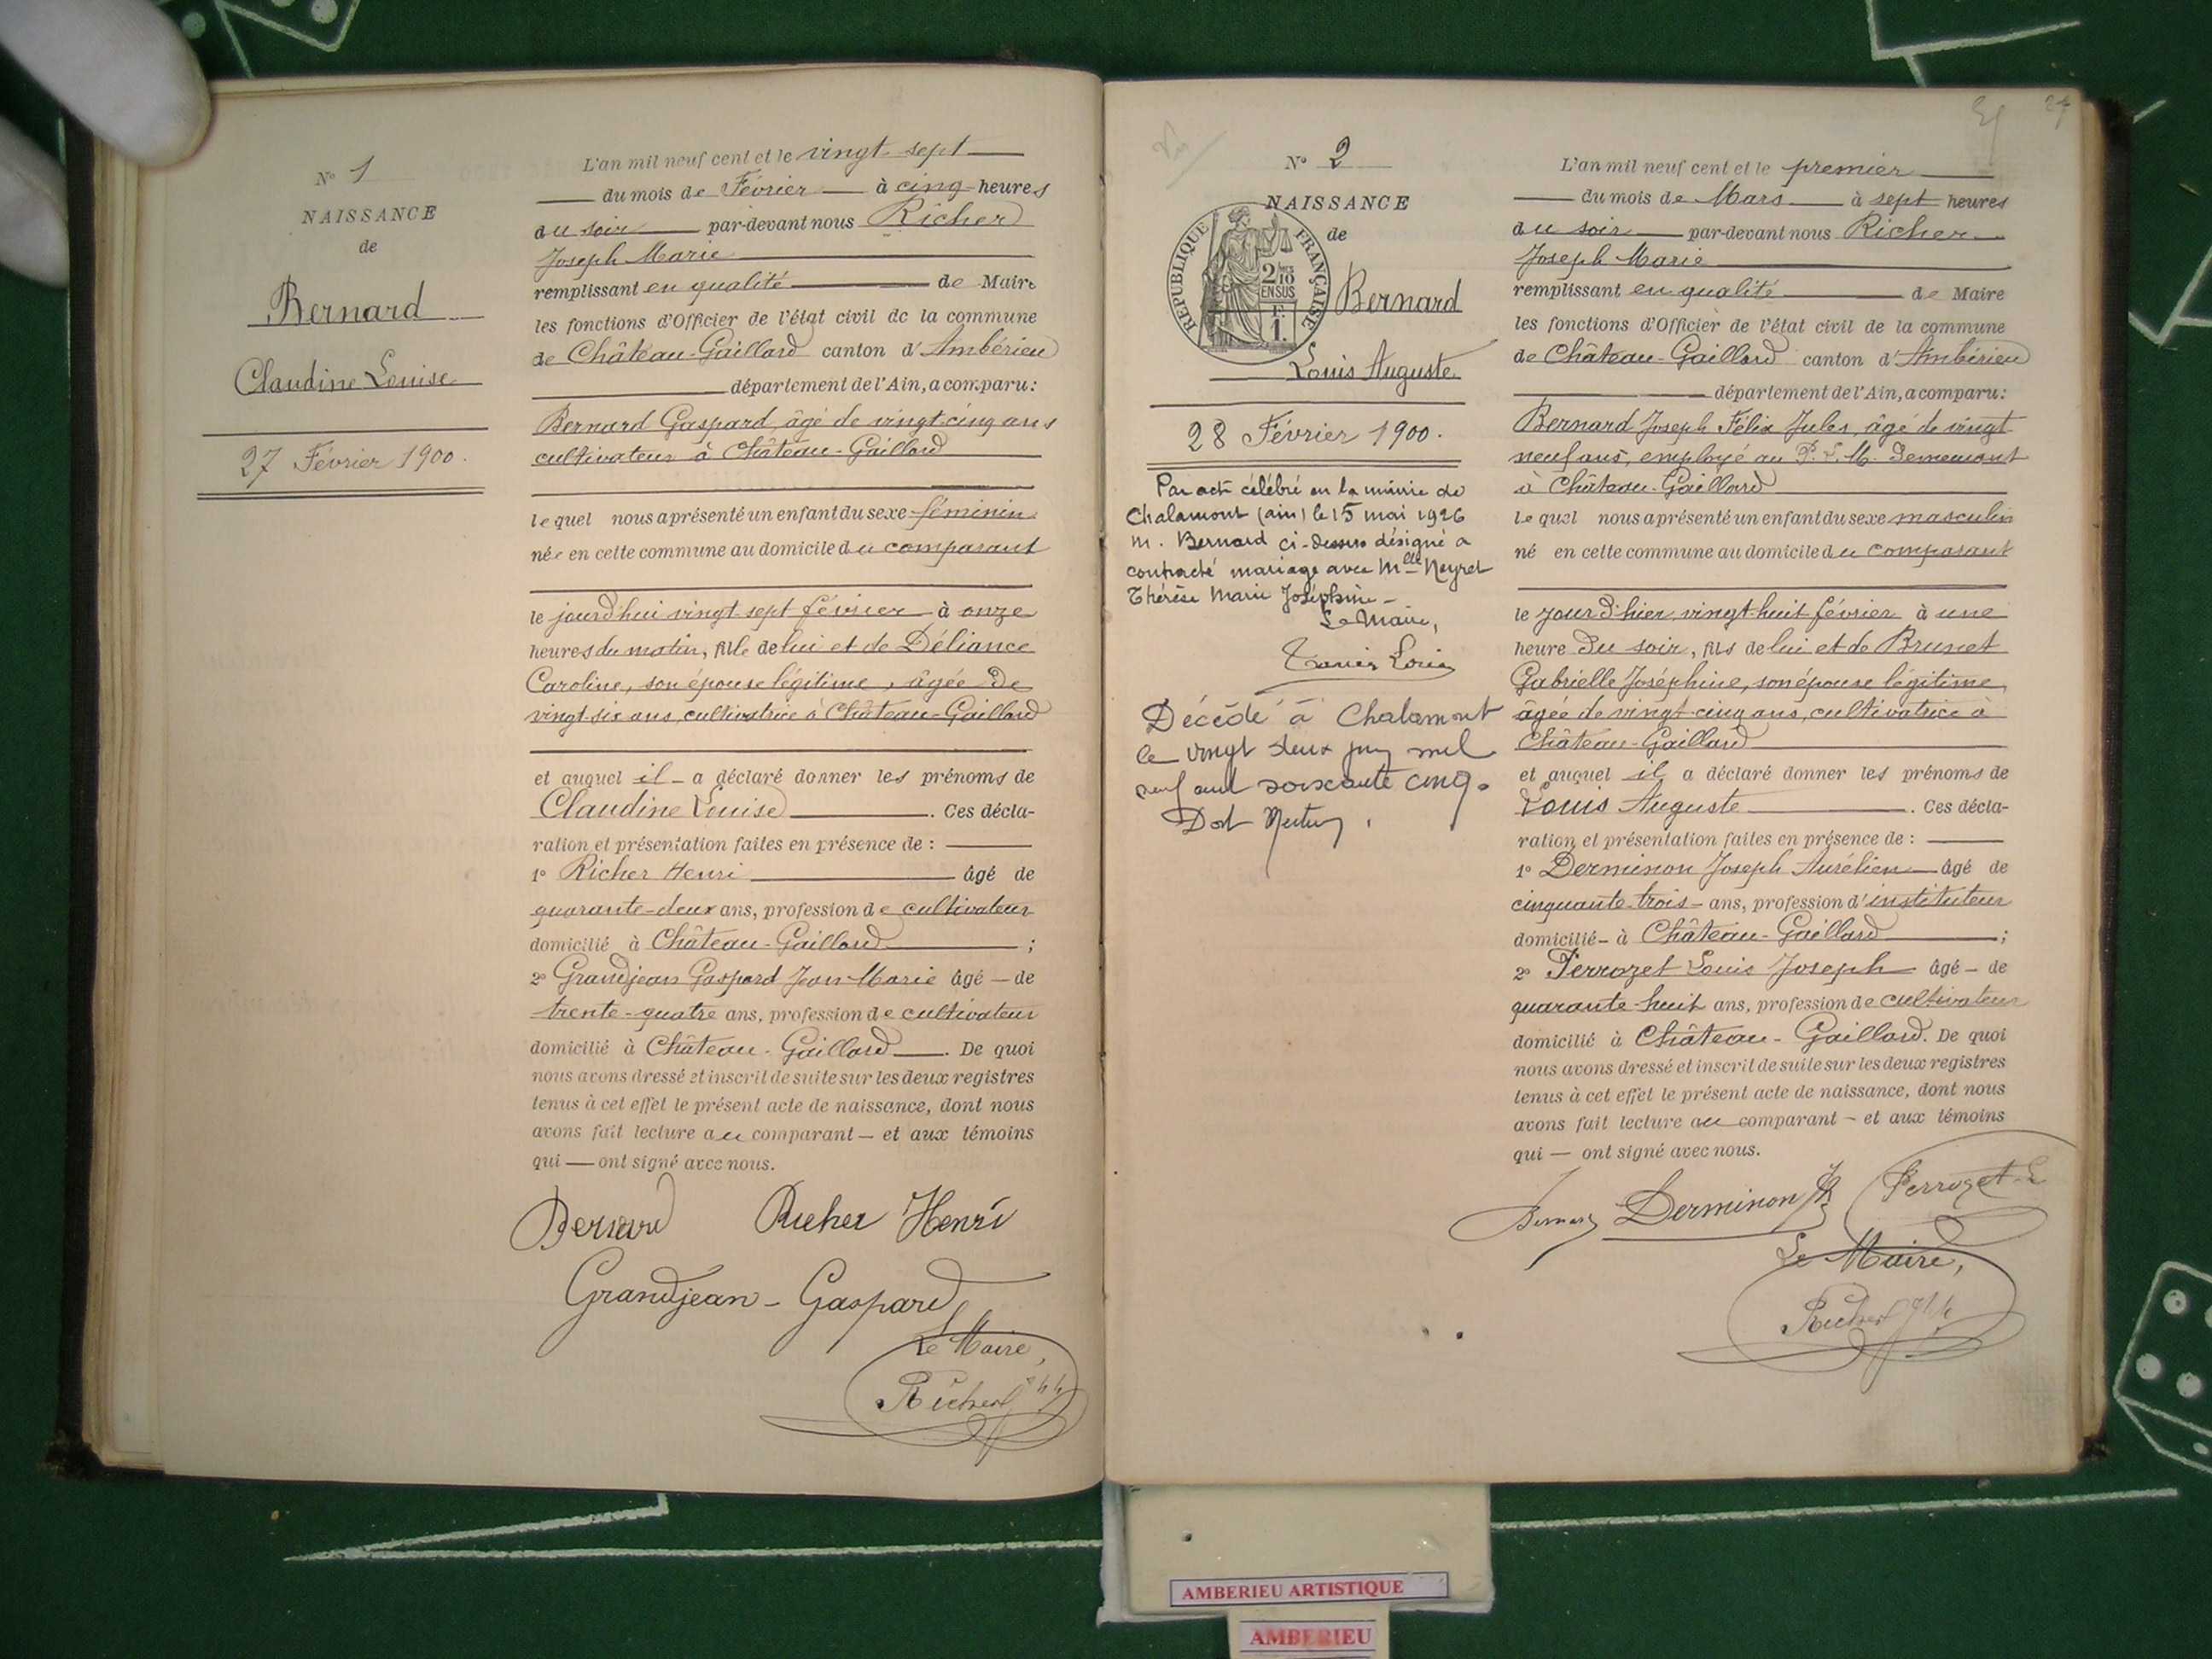 N° 1
NAISSANCE
de
Bernard
Claudine Louise
27 Février 1900.
L'an mil neuf cent et le vingt-sept
du mois de Février à cinq heures
du soir par-devant nous Richer
Joseph Marie
remplissant en qualité de Maire
les fonctions d'Officier de l'état civil de la commune
de Château-Gaillard canton d'Ambérieu
département de l'Ain, a comparu:
Bernard Gaspard, âgé de vingt-cinq ans
cultivateur à Château-Gaillard
lequel nous a présenté un enfant du sexe féminin
née en cette commune au domicile du comparant
le jourd'hui vingt-sept février à onze
heures du matin, fille de lui et de Déliance
Caroline, son épouse légitime, âgée de
vingt-six ans, cultivatrice à Château-Gaillard
et auquel il a déclaré donner les prénoms de
Claudine Louise. Ces décla-
ration et présentation faites en présence de :
1° Richer Henri âgé de
quarante-deux ans, profession de cultivateur
domicilié à Château-Gaillard ;
2° Grandjean Gaspard Jean Marie âgé de
trente-quatre ans, profession de cultivateur
domicilié à Château-Gaillard. De quoi
nous avons dressé et inscrit de suite sur les deux registres
tenus à cet effet le présent acte de naissance, dont nous
avons fait lecture au comparant et aux témoins
qui ont signé avec nous.
Bernard Richer Henri
Grandjean-Gaspard
Le Maire,
Richer
27
N° 2
NAISSANCE
de
RÉPUBLIQUE FRANÇAISE
2/10
EN SUS
1
Bernard
Louis Auguste
28 Février 1900.
Par acte célébré en la mairie de
Chalamont (ain) le 15 mai 1926
m. Bernard ci-dessus désigné a
contracté mariage avec Mlle Neyret
Thérèse Marie Joséphine
Le Maire,
Décédé à Chalamont
le vingt deux juin mil
neuf cent soixante cinq.
L'an mil neuf cent et le premier
du mois de Mars à sept heures
du soir par-devant nous Richer
Joseph Marie
remplissant en qualité de Maire
les fonctions d'Officier de l'état civil de la commune
de Château-Gaillard canton d'Ambérieu
département de l'Ain, a comparu:
Bernard Joseph Félix Jules, âgé de vingt
neuf ans, employé au P. L. M. demeurant
à Château-Gaillard
lequel nous a présenté un enfant du sexe masculin
né en cette commune au domicile du comparant
le jour d'hier vingt-huit février à une
heure du soir, fils de lui et de Brunet
Gabrielle Joséphine, son épouse légitime,
âgée de vingt-cinq ans, cultivatrice à
Château-Gaillard
et auquel il a déclaré donner les prénoms de
Louis Auguste. Ces décla-
ration et présentation faites en présence de :
1° Derminon Joseph Aurélien âgé de
cinquante-trois ans, profession d'instituteur
domicilié à Château-Gaillard ;
2° Perrozet Louis Joseph âgé de
quarante-huit ans, profession de cultivateur
domicilié à Château-Gaillard. De quoi
nous avons dressé et inscrit de suite sur les deux registres
tenus à cet effet le présent acte de naissance, dont nous
avons fait lecture au comparant et aux témoins
qui ont signé avec nous.
Bernard Derminon Jh Perrozet L
Le Maire,
Richer
AMBERIEU ARTISTIQUE
AMBERIEU